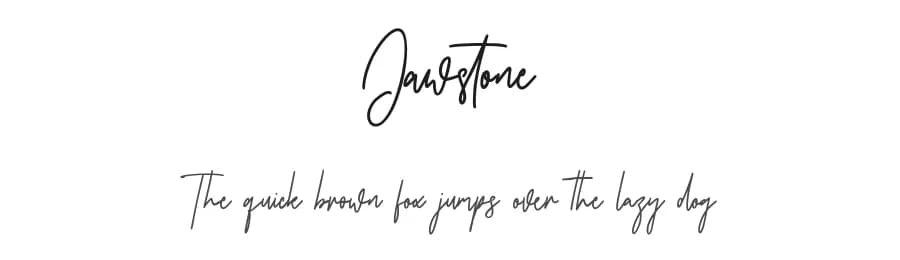 Jawstone
The quick brown fox jumps over the lazy dog